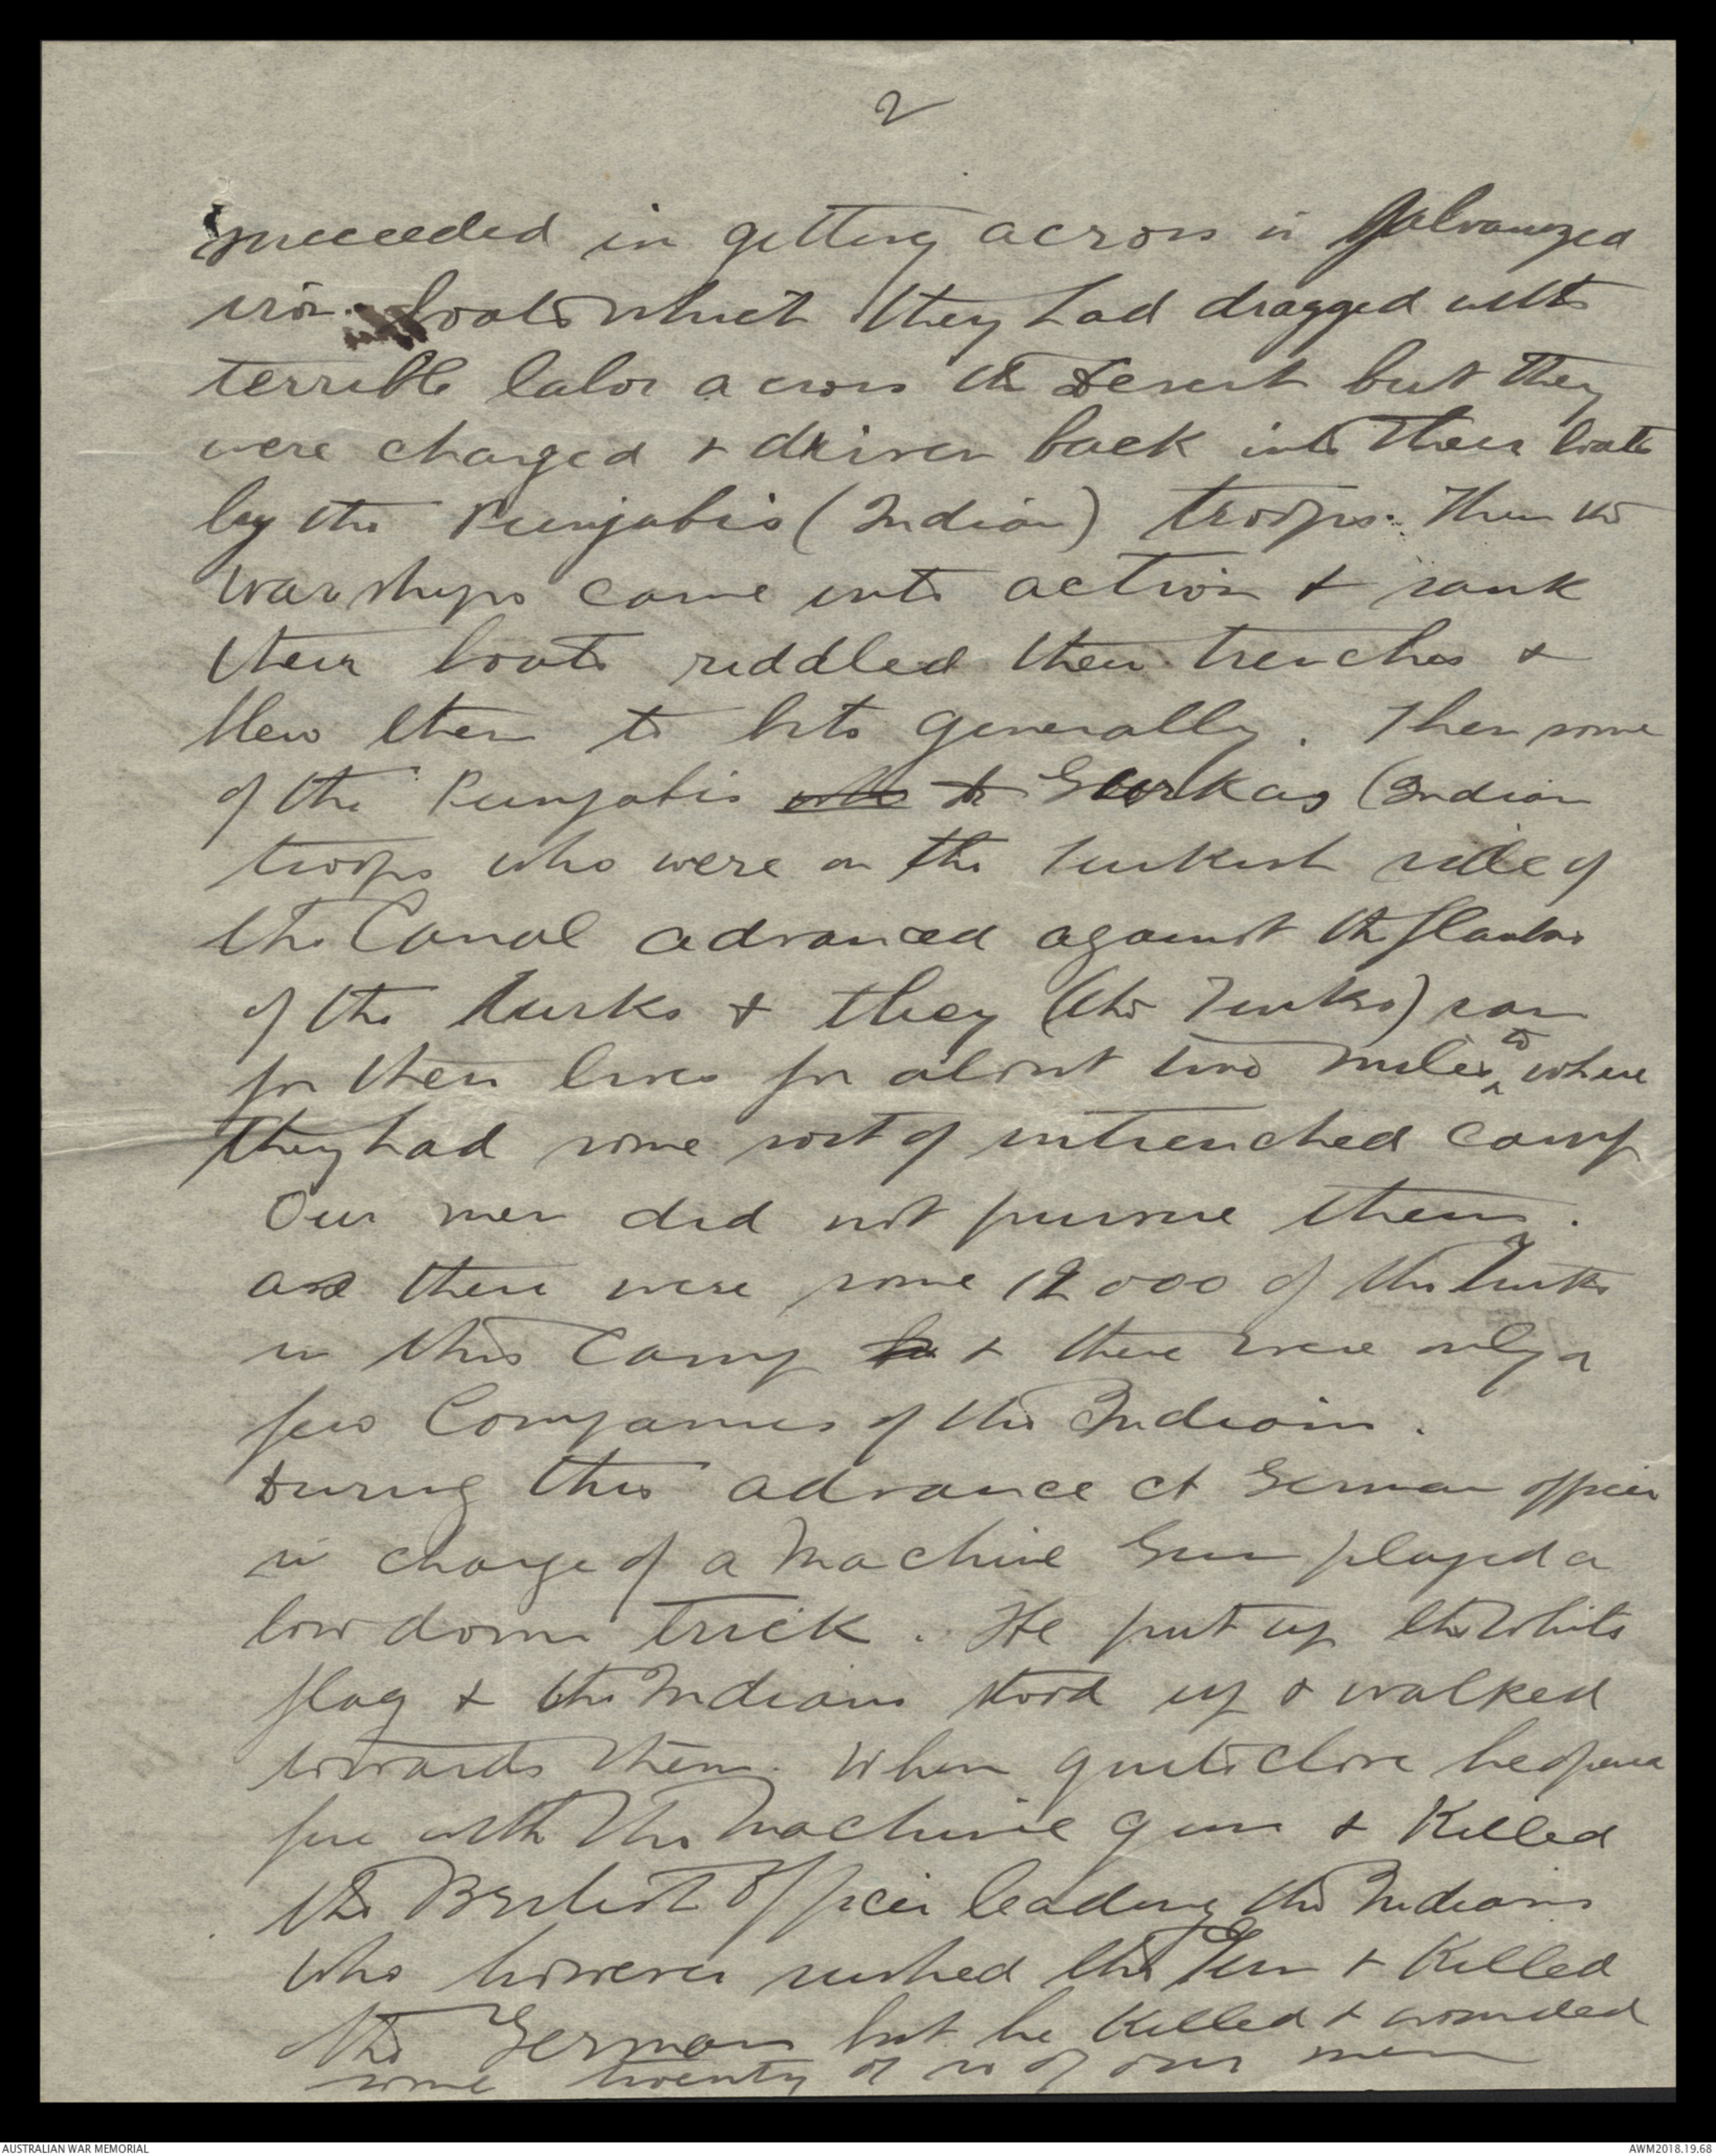 2
succeeded in getting across in Galvanized
iron boats which they had dragged with
terrible labor across the Desert but they
were charged & driven back into their boats
by the Punjabis (Indian) troops. Then the
warships came into action & sank
their boats riddled their trenches &
blew them to bits generally. Then some
of the Punjabis & Gurkas (Indian
troops who were on the Turkish side of
the Canal advanced against the flanks
of the Turks & they (the Turks) ran
for their lives for about two miles to where
they had some sort of intrenched camp
Our men did not pursue them.
as there were some 12000 of the Turks
in this Camp & there were only a
few Companies of the Indians.
During this advance a German officer
in charge of a Machine Gun played a
low down trick. He put up the White
flag & the Indians stood up & walked
towards them. When quite close he opened
fire with the Machine gun & Killed
the British Officer leading the Indians
who however rushed the Gun & Killed
the German but he Killed & wounded
some twenty or so of our men
AUSTRALIAN WAR MEMORIAL
AWM2018.19.68